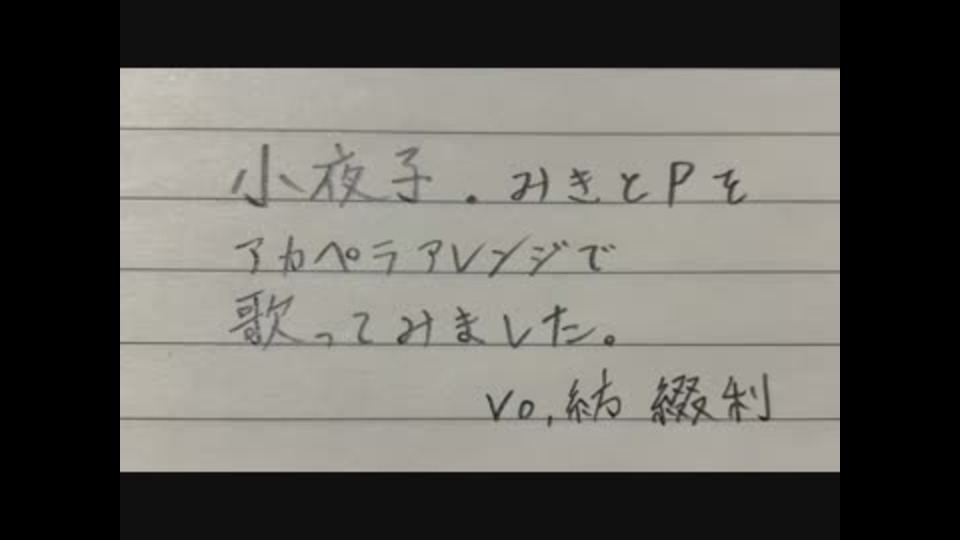 小夜子.みきとPを
アカペラアレンジで
歌ってみました。
vo.紡 綴利